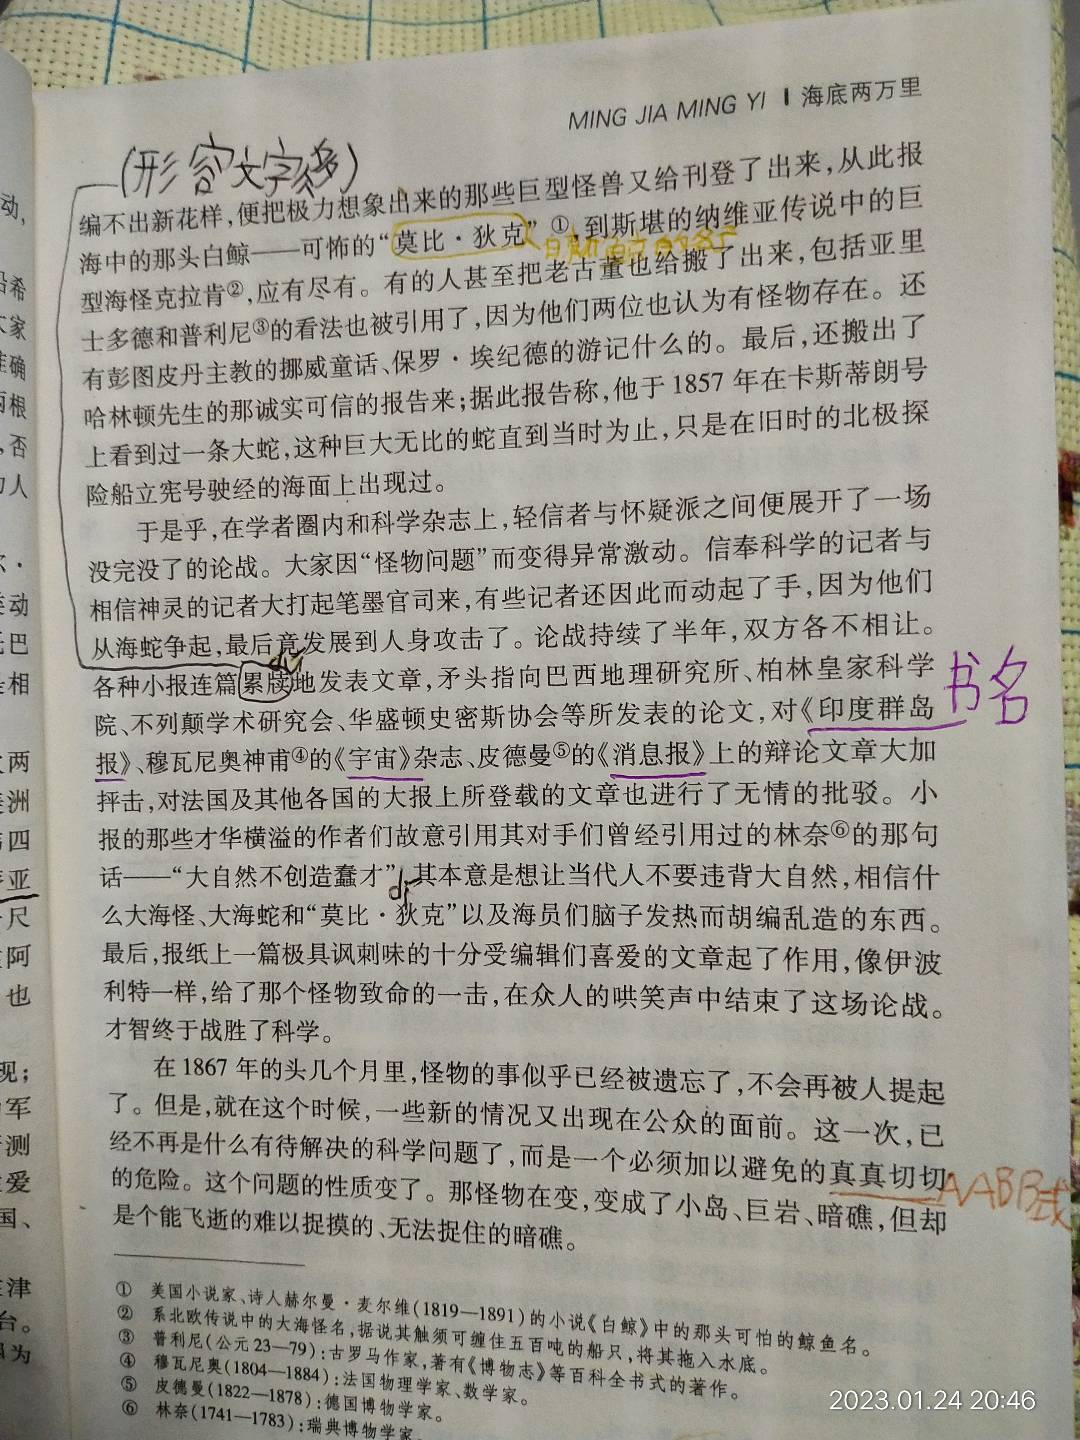 MING JIA MING YI 海底两万里
(形容文字多)
编不出新花样,便把极力想象出来的那些巨型怪兽又给刊登了出来,从此报
海中的那头白鲸——可怖的“莫比·狄克”①,到斯堪的纳维亚传说中的巨
型海怪克拉肯②,应有尽有。有的人甚至把老古董也给搬了出来,包括亚里
士多德和普利尼③的看法也被引用了,因为他们两位也认为有怪物存在。还
有彭图皮丹主教的挪威童话、保罗·埃纪德的游记什么的。最后,还搬出了
哈林顿先生的那诚实可信的报告来;据此报告称,他于1857年在卡斯蒂朗号
上看到过一条大蛇,这种巨大无比的蛇直到当时为止,只是在旧时的北极探
险船立宪号驶经的海面上出现过。
于是乎,在学者圈内和科学杂志上,轻信者与怀疑派之间便展开了一场
没完没了的论战。大家因“怪物问题”而变得异常激动。信奉科学的记者与
相信神灵的记者大打起笔墨官司来,有些记者还因此而动起了手,因为他们
从海蛇争起,最后竟发展到人身攻击了。论战持续了半年,双方各不相让。
各种小报连篇累牍地发表文章,矛头指向巴西地理研究所、柏林皇家科学
书名
院、不列颠学术研究会、华盛顿史密斯协会等所发表的论文,对《印度群岛
报》、穆瓦尼奥神甫④的《宇宙》杂志、皮德曼⑤的《消息报》上的辩论文章大加
抨击,对法国及其他各国的大报上所登载的文章也进行了无情的批驳。小
报的那些才华横溢的作者们故意引用其对手们曾经引用过的林奈⑥的那句
话——“大自然不创造蠢才”,其本意是想让当代人不要违背大自然,相信什
dí
么大海怪、大海蛇和“莫比·狄克”以及海员们脑子发热而胡编乱造的东西。
最后,报纸上一篇极具讽刺味的十分受编辑们喜爱的文章起了作用,像伊波
利特一样,给了那个怪物致命的一击,在众人的哄笑声中结束了这场论战。
才智终于战胜了科学。
在1867年的头几个月里,怪物的事似乎已经被遗忘了,不会再被人提起
了。但是,就在这个时候,一些新的情况又出现在公众的面前。这一次,已
经不再是什么有待解决的科学问题了,而是一个必须加以避免的真真切切
AABB式
的危险。这个问题的性质变了。那怪物在变,变成了小岛、巨岩、暗礁,但却
是个能飞逝的难以捉摸的、无法捉住的暗礁。
① 美国小说家、诗人赫尔曼·麦尔维(1819—1891)的小说《白鲸》中的那头可怕的鲸鱼名。
② 系北欧传说中的大海怪名,据说其触须可缠住五百吨的船只,将其拖入水底。
③ 普利尼(公元23—79):古罗马作家,著有《博物志》等百科全书式的著作。
④ 穆瓦尼奥(1804—1884):法国物理学家、数学家。
⑤ 皮德曼(1822—1878):德国博物学家。
⑥ 林奈(1741—1783):瑞典博物学家。
2023.01.24 20:46